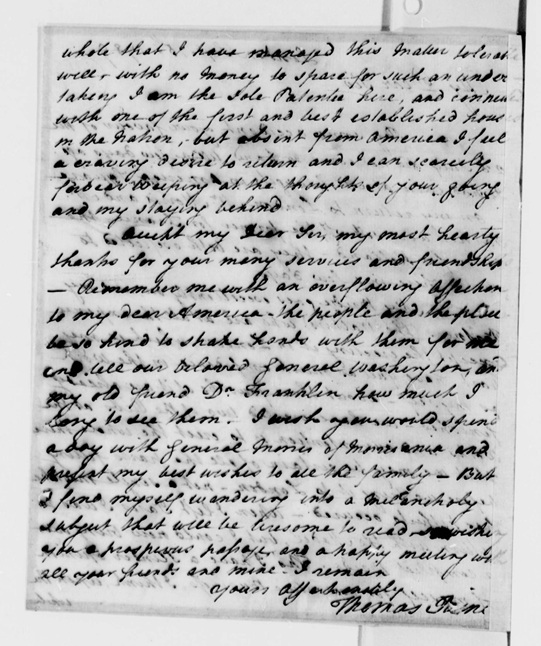 whole that I have managed this matter tolerable
well, with no money to spare for such an under
taking I am the sole Patentee here, and connected
with one of the first and best established houses
in the Nation, but absent from America I feel
a craving desire to return and I can scarcely
forbear weeping at the thoughts of your going
and my staying behind
accept my dear Sir, my most hearty
thanks for your many services and friendship
— Remember me with an overflowing affection
to my dear America — the people and the place
be so kind to shake hands with them for me
and tell our beloved General Washington, and
my old friend Dr. Franklin how much I
long to see them. I wish you would spend
a day with General Morris of Morrisania and
present my best wishes to all the family — But
I find myself wandering into a melancholy
subject that will be tiresome to read — wishing
you a prosperous passage, and a happy meeting with
all your friends and mine I remain
yours affectionately
Thomas Paine